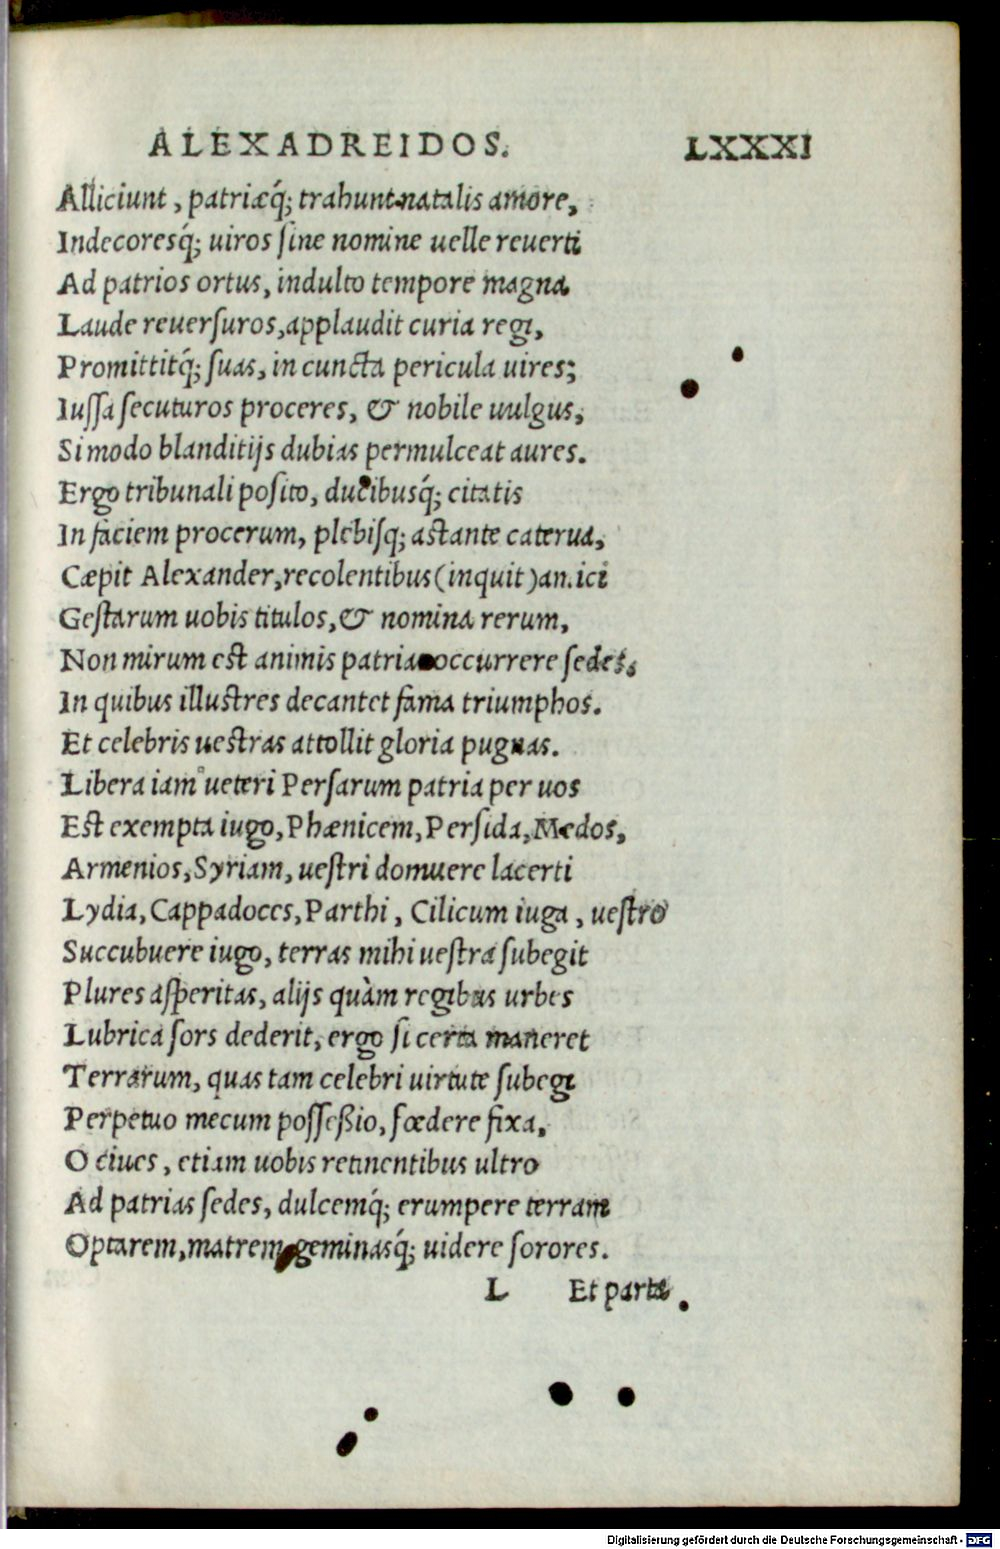 ALEXADREIDOS. LXXXI
Alliciunt, patriæq́; trahunt natalis amore,
Indecoresq́; uiros ſine nomine uelle reuerti
Ad patrios ortus, indulto tempore magna
Laude reuerſuros, applaudit curia regi,
Promittitq́; ſuas, in cuncta pericula uires;
Iuſſa ſecuturos proceres, & nobile uulgus,
Si modo blanditijs dubias permulceat aures.
Ergo tribunali poſito, ducibusq́; citatis
In faciem procerum, plebiſq; aſtante caterua,
Cæpit Alexander, recolentibus (inquit) amici
Geſtarum uobis titulos, & nomina rerum,
Non mirum eſt animis patria occurrere ſedes,
In quibus illuſtres decantet fama triumphos.
Et celebris ueſtras attollit gloria pugnas.
Libera iam ueteri Perſarum patria per uos
Eſt exempta iugo, Phænicem, Perſida, Medos,
Armenios, Syriam, ueſtri domuere lacerti
Lydia, Cappadoces, Parthi, Cilicum iuga, ueſtro
Succubuere iugo, terras mihi ueſtra ſubegit
Plures aſperitas, alijs quàm regibus urbes
Lubrica ſors dederit, ergo ſi certa maneret
Terrarum, quas tam celebri uirtute ſubegi
Perpetuo mecum poſſeßio, fœdere fixa,
O ciues, etiam uobis retinentibus ultro
Ad patrias ſedes, dulcemq́; erumpere terram
Optarem, matrem, geminasq́; uidere ſorores.
L Et parta
Digitalisierung gefördert durch die Deutsche Forschungsgemeinschaft - DFG